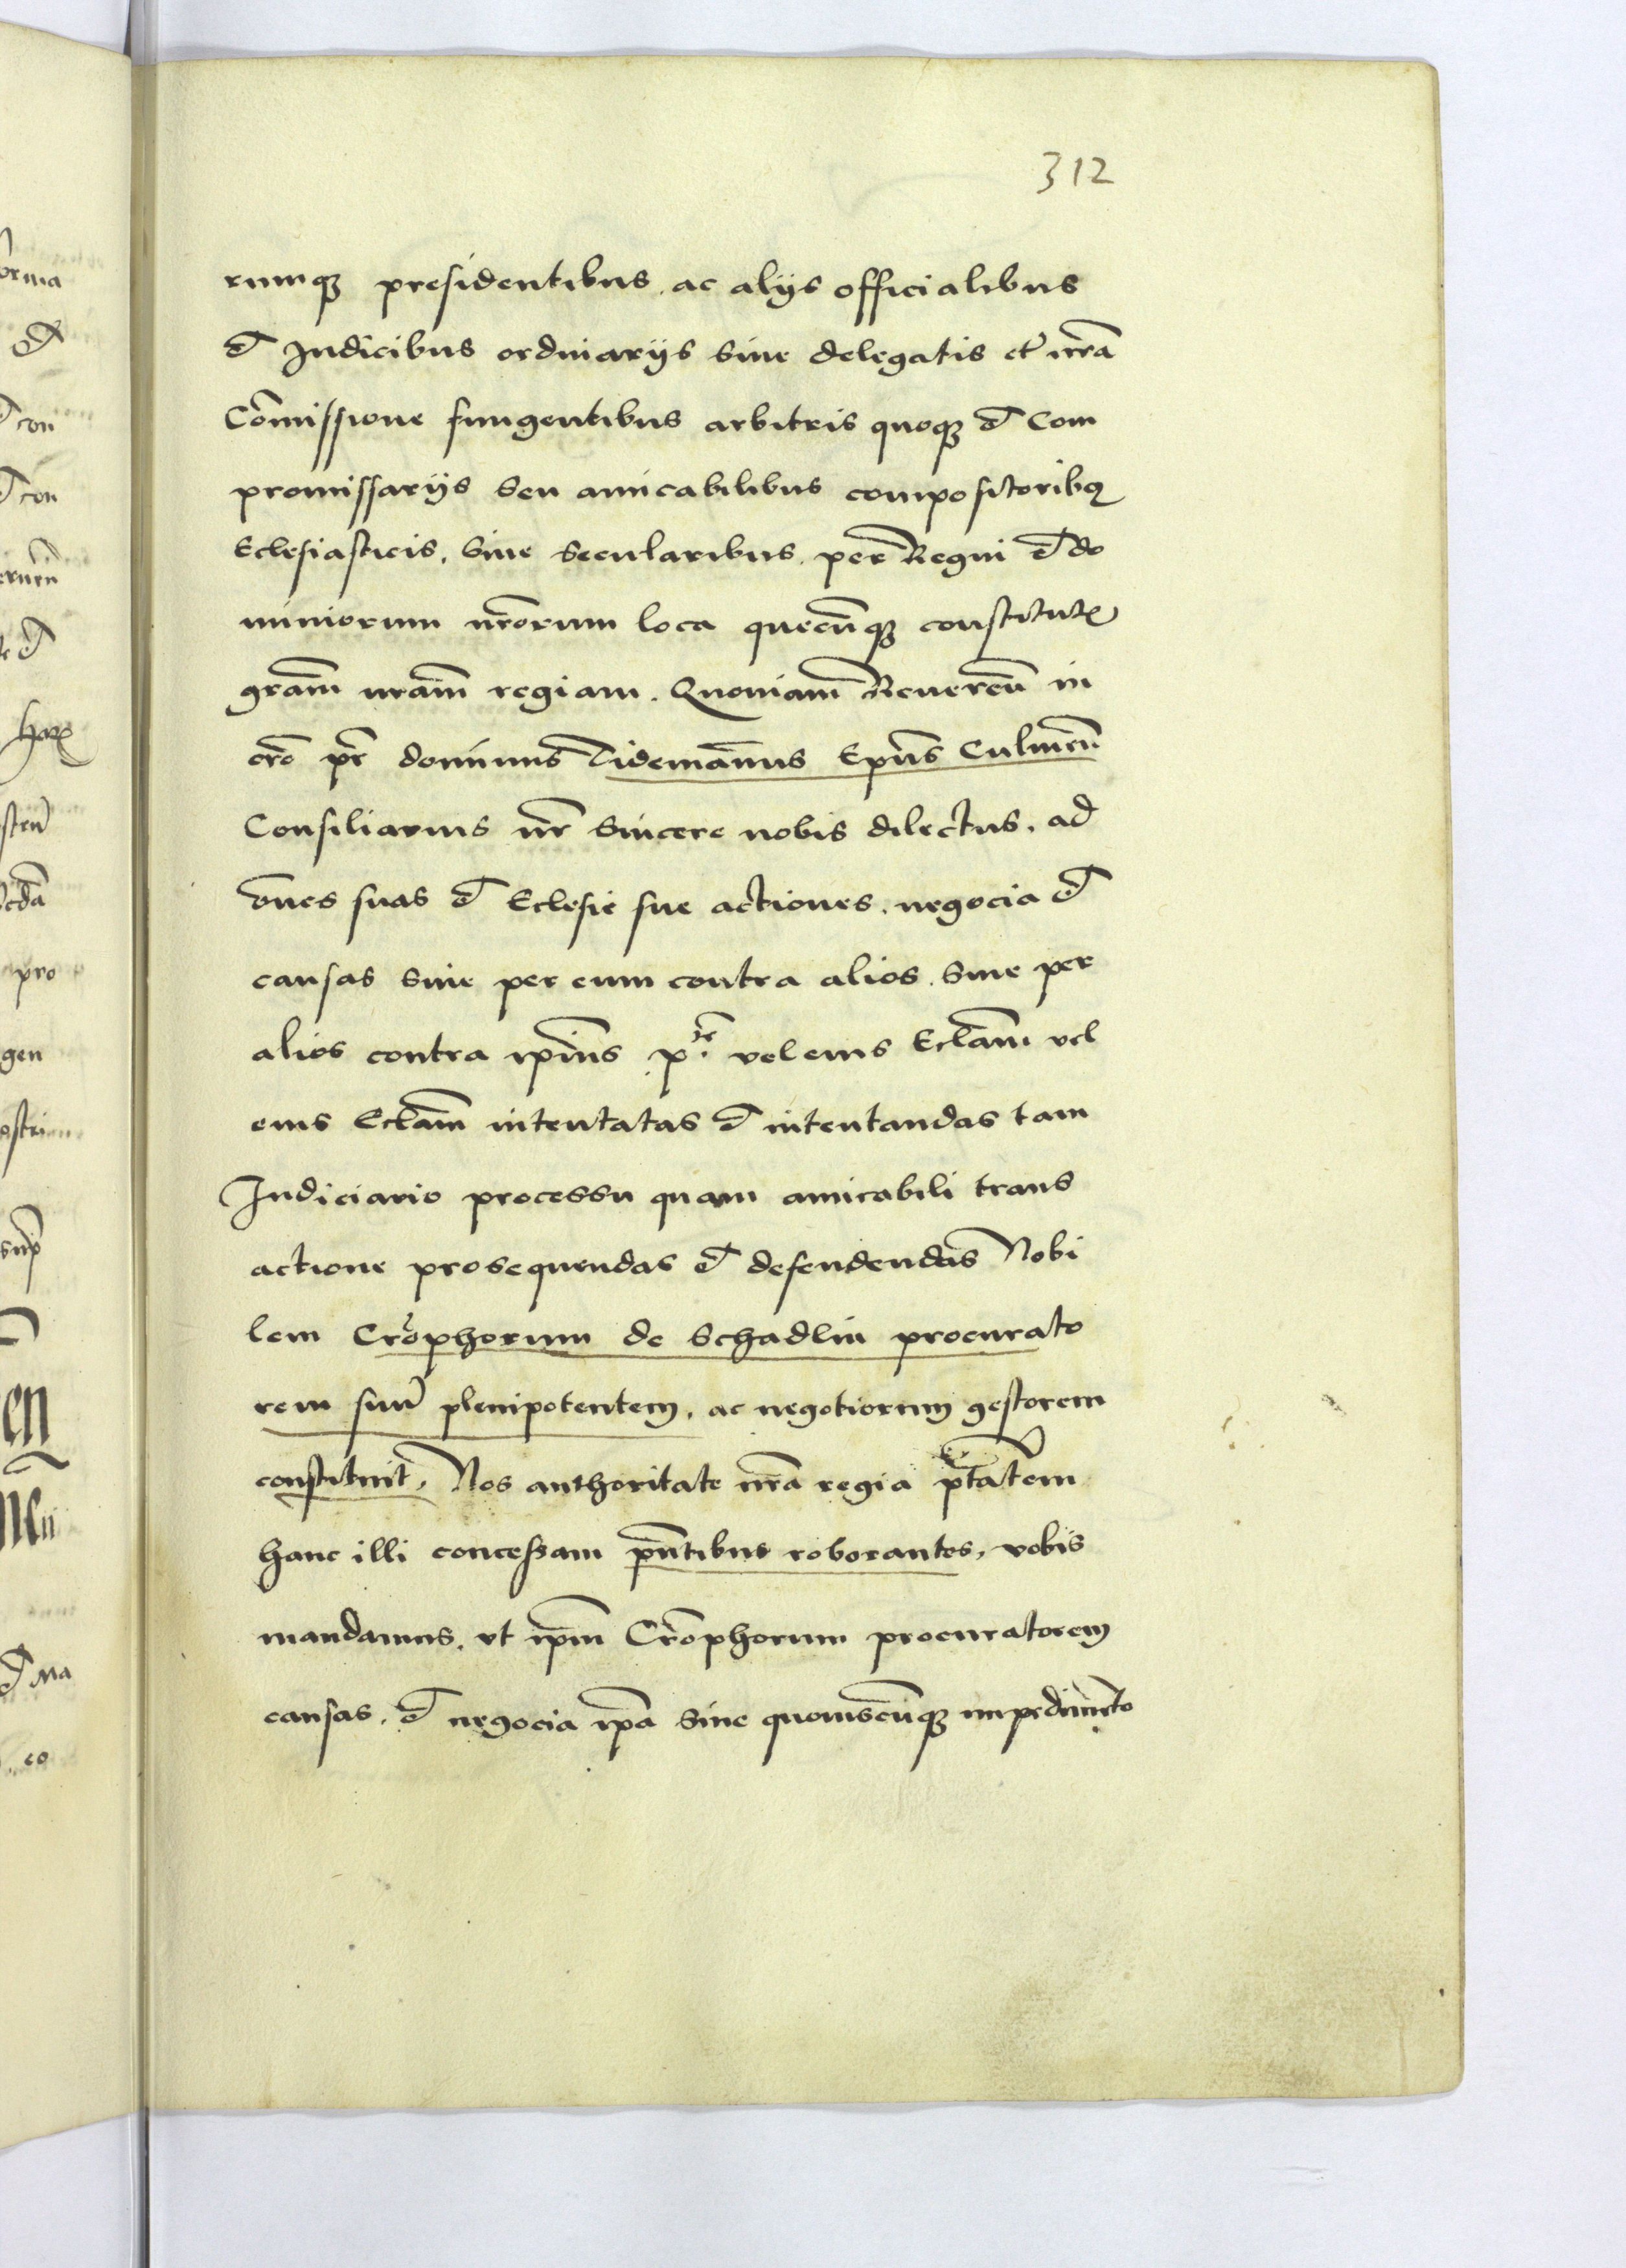 312
rumqȝ presidentibus ac alijs officialibus
et Iudicibus ordinarijs siue delegatis et nrã
Cõmissione fungentibus arbitris quoqȝ et Com
promissarijs seu amicabilibus compositoribꝫ
Eclesiasticis, siue secularibus per Regni et do
miniorum nrõrum loca quecũqȝ constitutꝭ
grãm nrãm regiam. Quoniam Reuereñ in
cro pr̃ dominus Tidemãnus Epũs Culmeñ
Consiliarius nr̃ sincere nobis dilectus, ad
oẽs suas et Eclesie sue actiones, negocia et
causas siue per eum contra alios siue per
alios contra ipius p. vel eius Eclãm vel
eius Eclãm intentatas et intentandas tam
Iudiciario processu quam amicabili trans
actione prosequendas et defendendas Nobi
lem Crõphorum de Schadlin procurato
rem suũ plenipotentem, ac negotiorum gestorem
constituit, Nos authoritate nrã regia ptãtem
hanc illi concessam pñtibus roborantes, vobis
mandamus, vt ipm̃ Crõphorum procuratorem
causas, et negocia ipã sine quouiscũqȝ impedimẽto